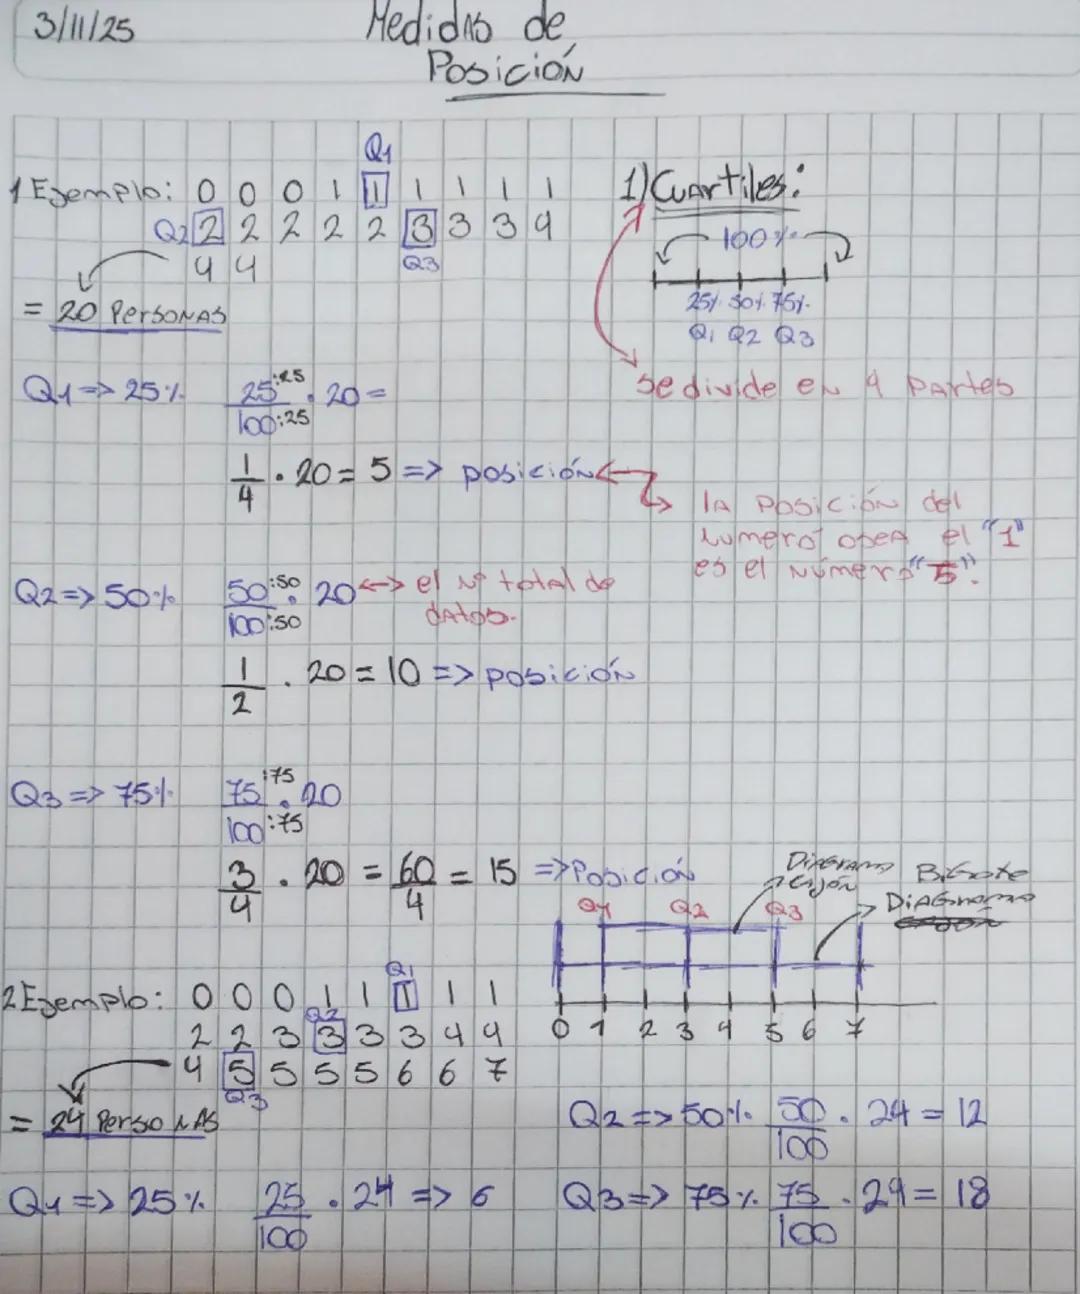 3/11/25
Medidas de
Posición
Q1
1 Ejemplo: 0 0 0 1 1 1 1 1 1
Q2 2 2 2 2 2 3 3 3 4
4 4
Q3
= 20 Personas
1) Cuartiles:
100%
25% 50% 75%
Q1 Q2 Q3
se divide en 4 partes
Q1 => 25% 25:25/100:25 · 20 =
1/4 · 20 = 5 => posición
la posición del
numero osea el "1"
es el número "5".
Q2 => 50% 50:50/100:50 · 20 <-> el Nº total de
datos.
1/2 · 20 = 10 => posición
Q3 => 75% 75:75/100:75 · 20
3/4 · 20 = 60/4 = 15 => Posición
Diagrama
cajón
Bigote
Diagrama
Q1 Q2 Q3
0 1 2 3 4 5 6 7
Q1
2 Ejemplo: 0 0 0 1 1 1 1 1
Q2
2 2 3 3 3 3 4 4
4 5 5 5 5 6 6 7
Q3
= 24 Personas
Q2 => 50% 50/100 · 24 = 12
Q1 => 25% 25/100 · 24 => 6
Q3 => 75% 75/100 · 24 = 18